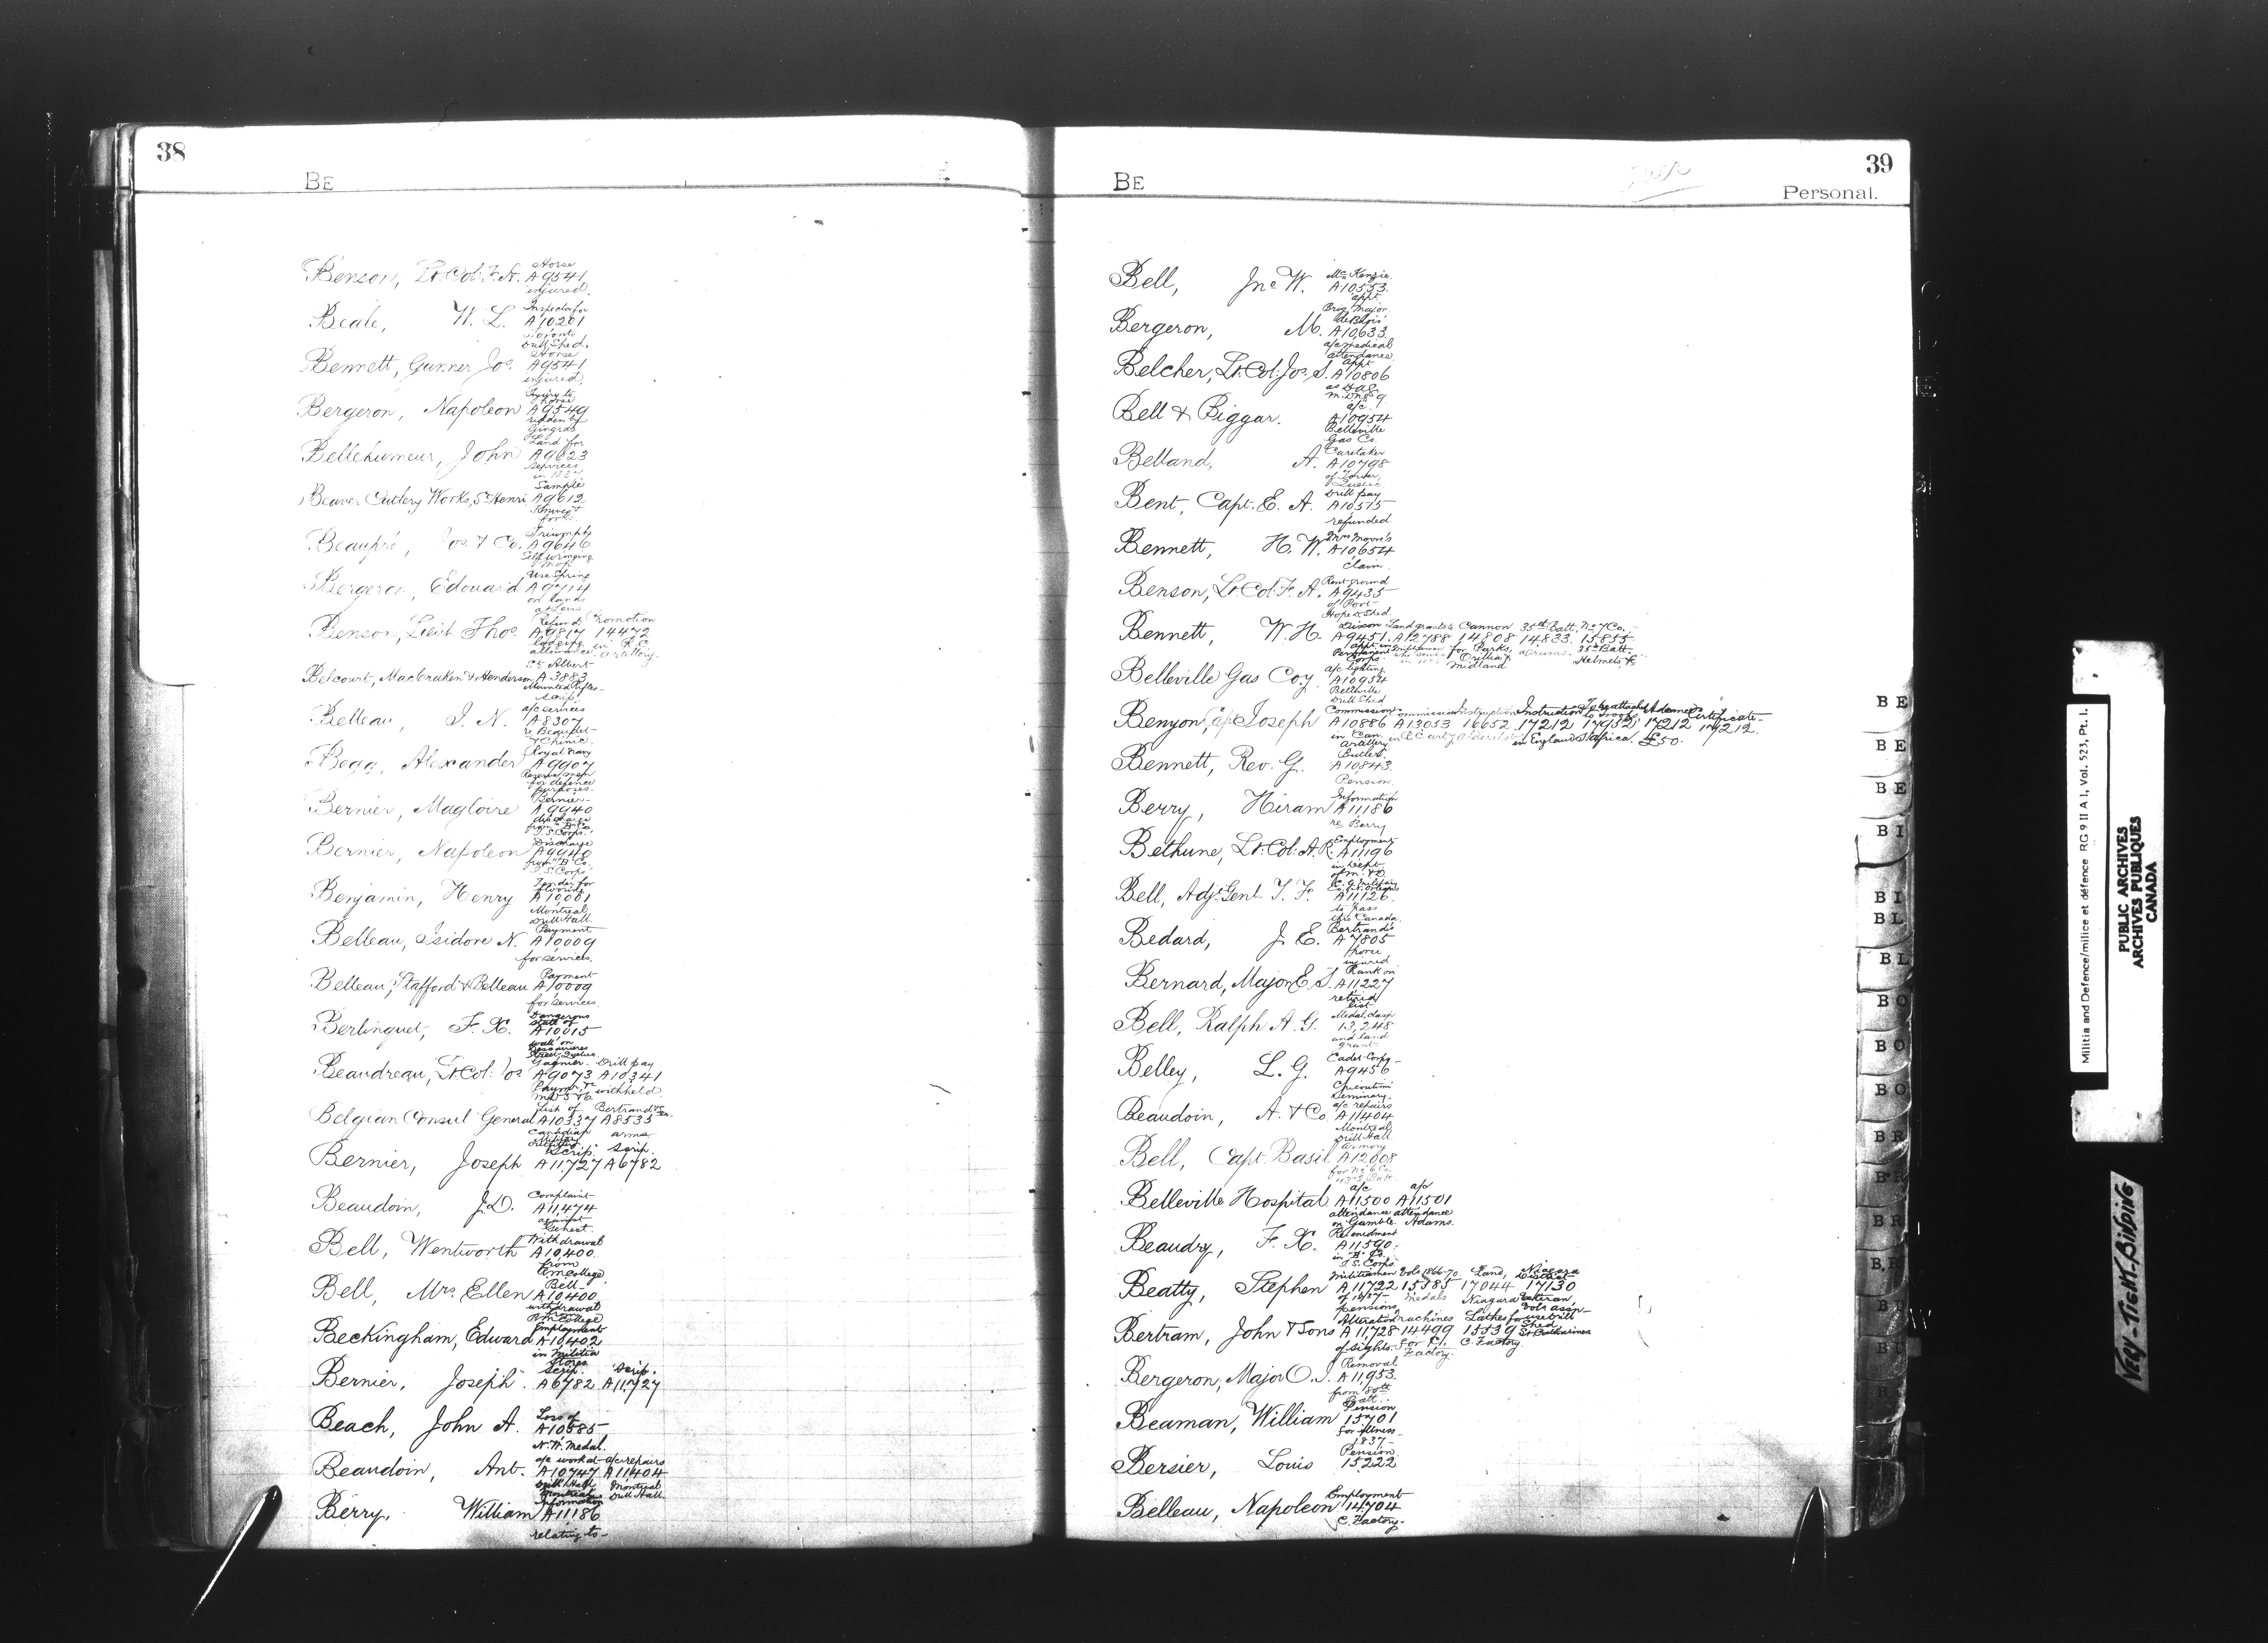 38
BE
Horse
Benson, Lt. Col. F. A. A9541
injured.
Inspector for
Beale, W. L. A10201
Toronto
Drill Shed.
Horse
Bennett, Gunner Jos. A9541
injured.
Injury to
horse
Bergeron, Napoleon A9549
ridden by
Gingras
Land for
Bellehumeur, John A9623
services
in 183
Sample
Beaver Cutlery Works, St. Henri A9612
Triumph
Beaupré, Jos. & Co. A9646
Self wringing
Mop
Use Spring
Bergeron, Edouard A9714
on lands
at Levis
Refund Promotion
Benson, Lieut Thos. A9817 14472
lodging in R. C.
allowance artillery.
St. Albert
Belcourt, MacCraken & Henderson A3883
Mounted Rifles
scrip.
a/c services
Belleau, I. N. A8307
re Beaupré
Royal Navy
Begg, Alexander A9907
Reserve men
for defence
purposes.
Bernier
Bernier, Magloire A9940
discharge
from "B" Co.
I. S. Corps.
Discharge
Bernier, Napoleon A9940
from "B" Co.
I. S. Corps
Tender for
flooring
Benjamin, Henry A10001
Montreal
Drill Hall.
Payment
Belleau, Isidore N. A10009
for services.
Payment
Belleau, Stafford & Belleau A10009
for services
Dangerous
state of
Berlinguet, F. X. A10015
wall on
Street, Quebec
Gagnier Drill pay
Beaudreau, Lt. Col. Jos. A9073 A10341
Paymr. withheld.
M.D. 5 & 6
List of Bertrand
Belgian Consul General A10337 A8535
Canadian arms
Military
Scrip. Scrip.
Bernier, Joseph A11,727 A6782
Complaint
Beaudoin, J. D. A11,474
against
Genest.
Withdrawal
Bell, Wentworth A10,400
from
R M College
Bell
Bell, Mrs. Ellen A10400
withdrawal
from
R M College
Employment
Beckingham, Edward A10,402
in Militia
Stores
Scrip. Scrip.
Bernier, Joseph. A6782 A11,727
Loss of
Beach, John A. A10585
N. W. Medal.
a/c work at a/c repairs
Beaudoin, Ant. A10747 A11404
Drill Hall Montreal
Montreal Drill Hall.
Information
Berry, William A11186
relating to
39
BE
Personal.
McKenzie
Bell, Jno W. A10553
appt.
Brig. Major
de Blois
Bergeron, M. A10,633
a/c medical
attendance
appt
Belcher, Lt. Col. Jos. S. A10806
as D.A.G.
M.D. No 9
a/c
Bell & Biggar. A10954
Belleville
Gas Co.
Caretaker
Belland, A. A10798
of Tower
Quebec
Drill pay
Bent, Capt. E. A. A10575
refunded
Mrs Moore's
Bennett, H. W. A10654
claim.
Rent ground
Benson, Lt. Col. F. A. A9435
of Port
Hope D. Shed
Dixon Land grants to Cannon 35th Batt. No 7 Co.
Bennett, W. H. A9451 A12788 14808 14833. 15855
appt. in for Parks, drums. 35th Batt.
Permanent Orillia & Helmets &
Corps. Midland
a/c lighting
Belleville Gas Coy. A10954
Belleville
Drill Shed
Commission Commission Instruction Instruction To be attached Certificate
Benyon, Capt. Joseph A10886 A13053 16652 17212 17952 17212 17212
in Can. in R. C. arty. Aldershot in England S. Africa. £50.
artillery.
Butler
Bennett, Rev. G. A10843
Pension
Information
Berry, Hiram A11186
re Berry
Employment
Bethune, Lt. Col. A. R. A11196
in Dept
of M. & D
Bell, Adjt. Genl. T. F. A11126
to pass
thro Canada.
Bertrand's
Bedard, J. E. A7805
horse
injured
Rank on
Bernard, Major E. S. A11227
retired
list
Medal, clasp
Bell, Ralph A. G. 13,248
and land
grant
Cadet Corps
Belley, L. G. A9456
Chicoutimi
Seminary.
a/c repairs
Beaudoin, A. & Co A11404
Montreal
Drill Hall
Armory
Bell, Capt. Basil A12008
for No 6 Co.
43rd Batt.
a/c a/c
Belleville Hospital A11500 A11501
attendance attendance
on Gamble. Adams.
Beaudry, F. X. A11,590
in "B" Co.
I. S. Corps
Militiamen Vols 1866-70 Land, Niagara
District
Beatty, Stephen A11722 15785 17044 17130
of 1837 medals Niagara Veteran
pensions Vols assn
Alteration machines Lathes for use Drill
Bertram, John & Sons A11,728 14499 15539 Shed
of sights. for C. C. Factory. St. Catharines
Factory.
Removal
Bergeron, Major O. I. A11,953
from 80th
Batt.
Pension
Beaman, William 15701
for illness
1837
Pension
Bersier, Louis 15222
Employment
Belleau, Napoleon 14704
C. Factory.
BE
BE
BE
BI
BI
BL
BL
BO
BO
BO
BR
BR
BR
BR
Militia and Defence/milice et défence RG 9 II A 1, Vol. 523, Pt. 1.
PUBLIC ARCHIVES
ARCHIVES PUBLIQUES
CANADA
VERY-TIGHT-BINDING